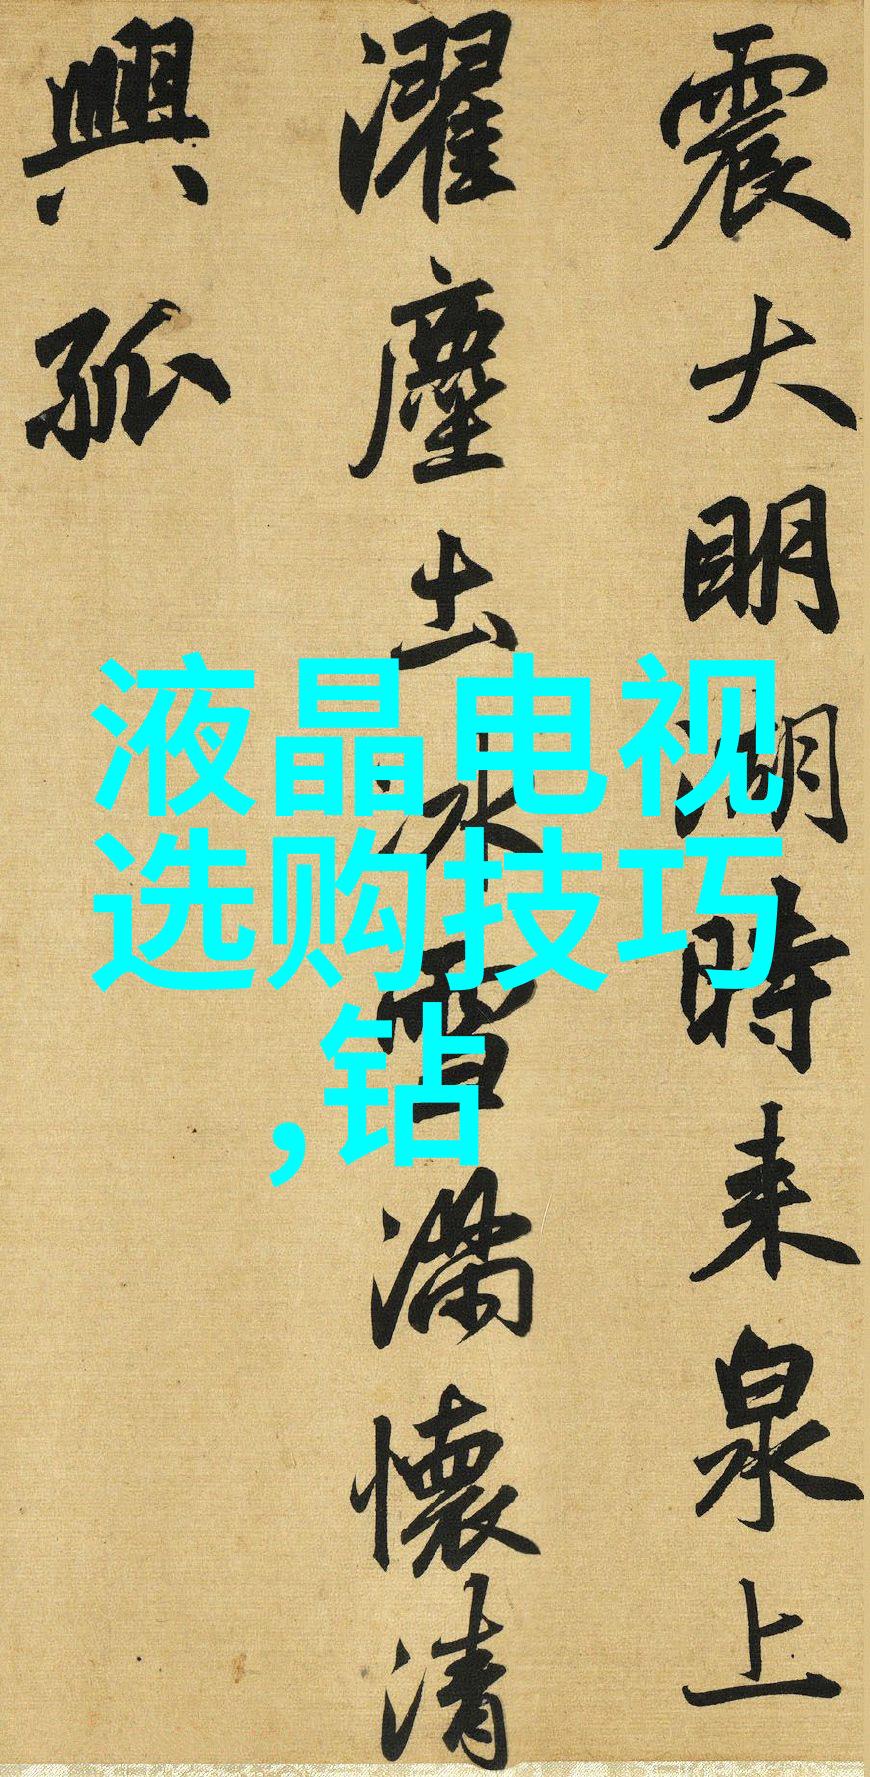 震大明湖時来泉上
濯塵土冰雪满懷清
興孤
液晶电视
选购技巧
,钻